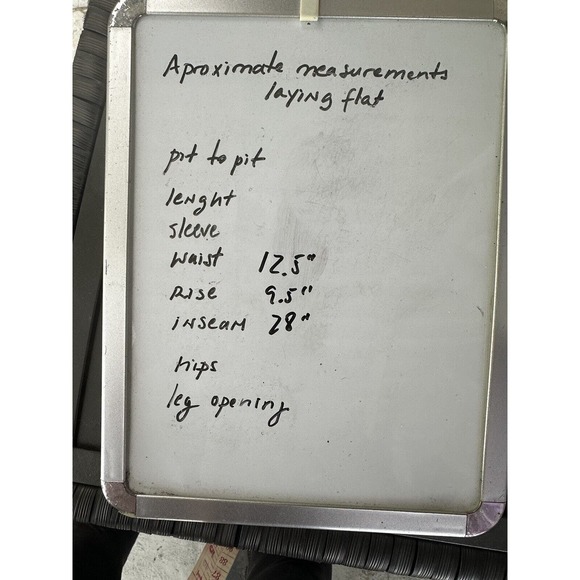 Aproximate measurements
laying flat
pit to pit
lenght
sleeve
waist 12.5"
Rise 9.5"
inseam 28"
hips
leg opening